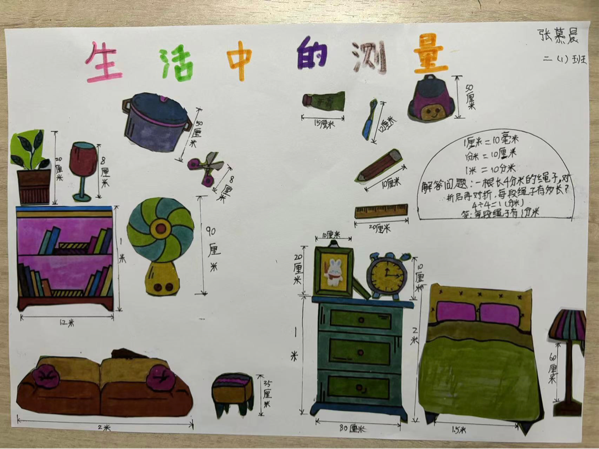 张慕晨
二(1)班
生活中的测量
30厘米
15厘米
50厘米
20厘米
8厘米
8厘米
10厘米
20厘米
1厘米=10毫米
1分米=10厘米
1米=10分米
解答问题:一根长4分米的绳子,对
折后再对折,每段绳子有多长?
4÷4=1(分米)
答:每段绳子有1分米
1米
90厘米
12米
20厘米
10厘米
1米
2米
80厘米
60厘米
35厘米
2米
1.5米